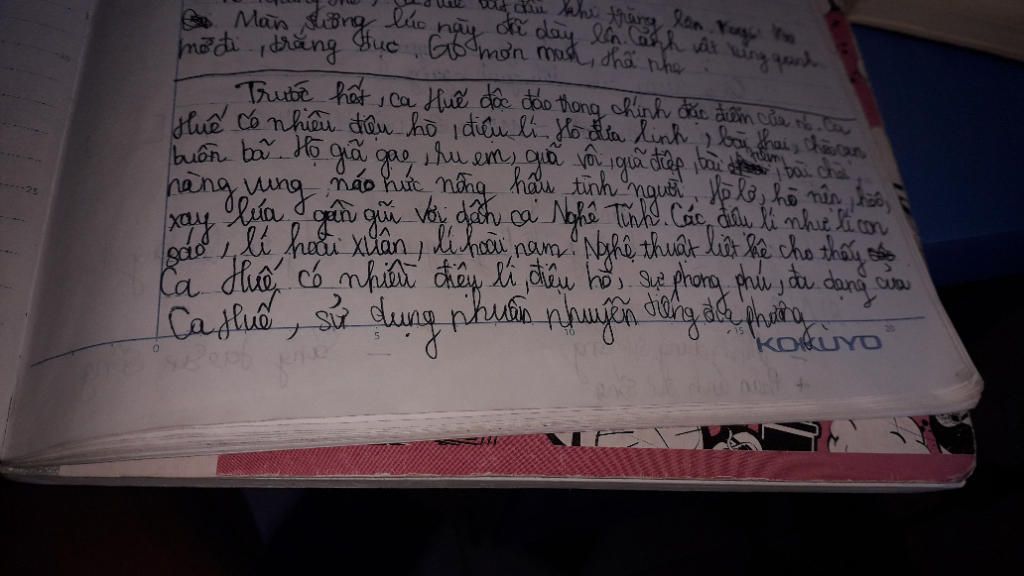 bắt đầu khi trăng lên.
Màn sương lúc này đã dày lên cảnh vật xung quanh
mờ đi, trắng đục. Gió mơn man, thả nhẹ.
Trước hết, ca Huế độc đáo trong chính đặc điểm của nó. Ca
Huế có nhiều điệu hò, điệu lí Hò đưa linh, bài thai, chèo cạn
buồn bã. Hò giã gạo, ru em, giã vôi, giã điệp, bài nam, bài chòi
nàng vung náo nức nồng hậu tình người. Hò lơ, hò nện, hò ô,
xay lúa gần gũi với dân ca Nghệ Tĩnh. Các điệu lí như lí con
sáo, lí hoài xuân, lí hoài nam. Nghệ thuật liệt kê cho thấy
Ca Huế có nhiều điệu lí, điệu hò, sự phong phú, đa dạng của
Ca Huế, sử dụng nhuần nhuyễn tiếng địa phương
0 5 10 15 20
KOKUYO